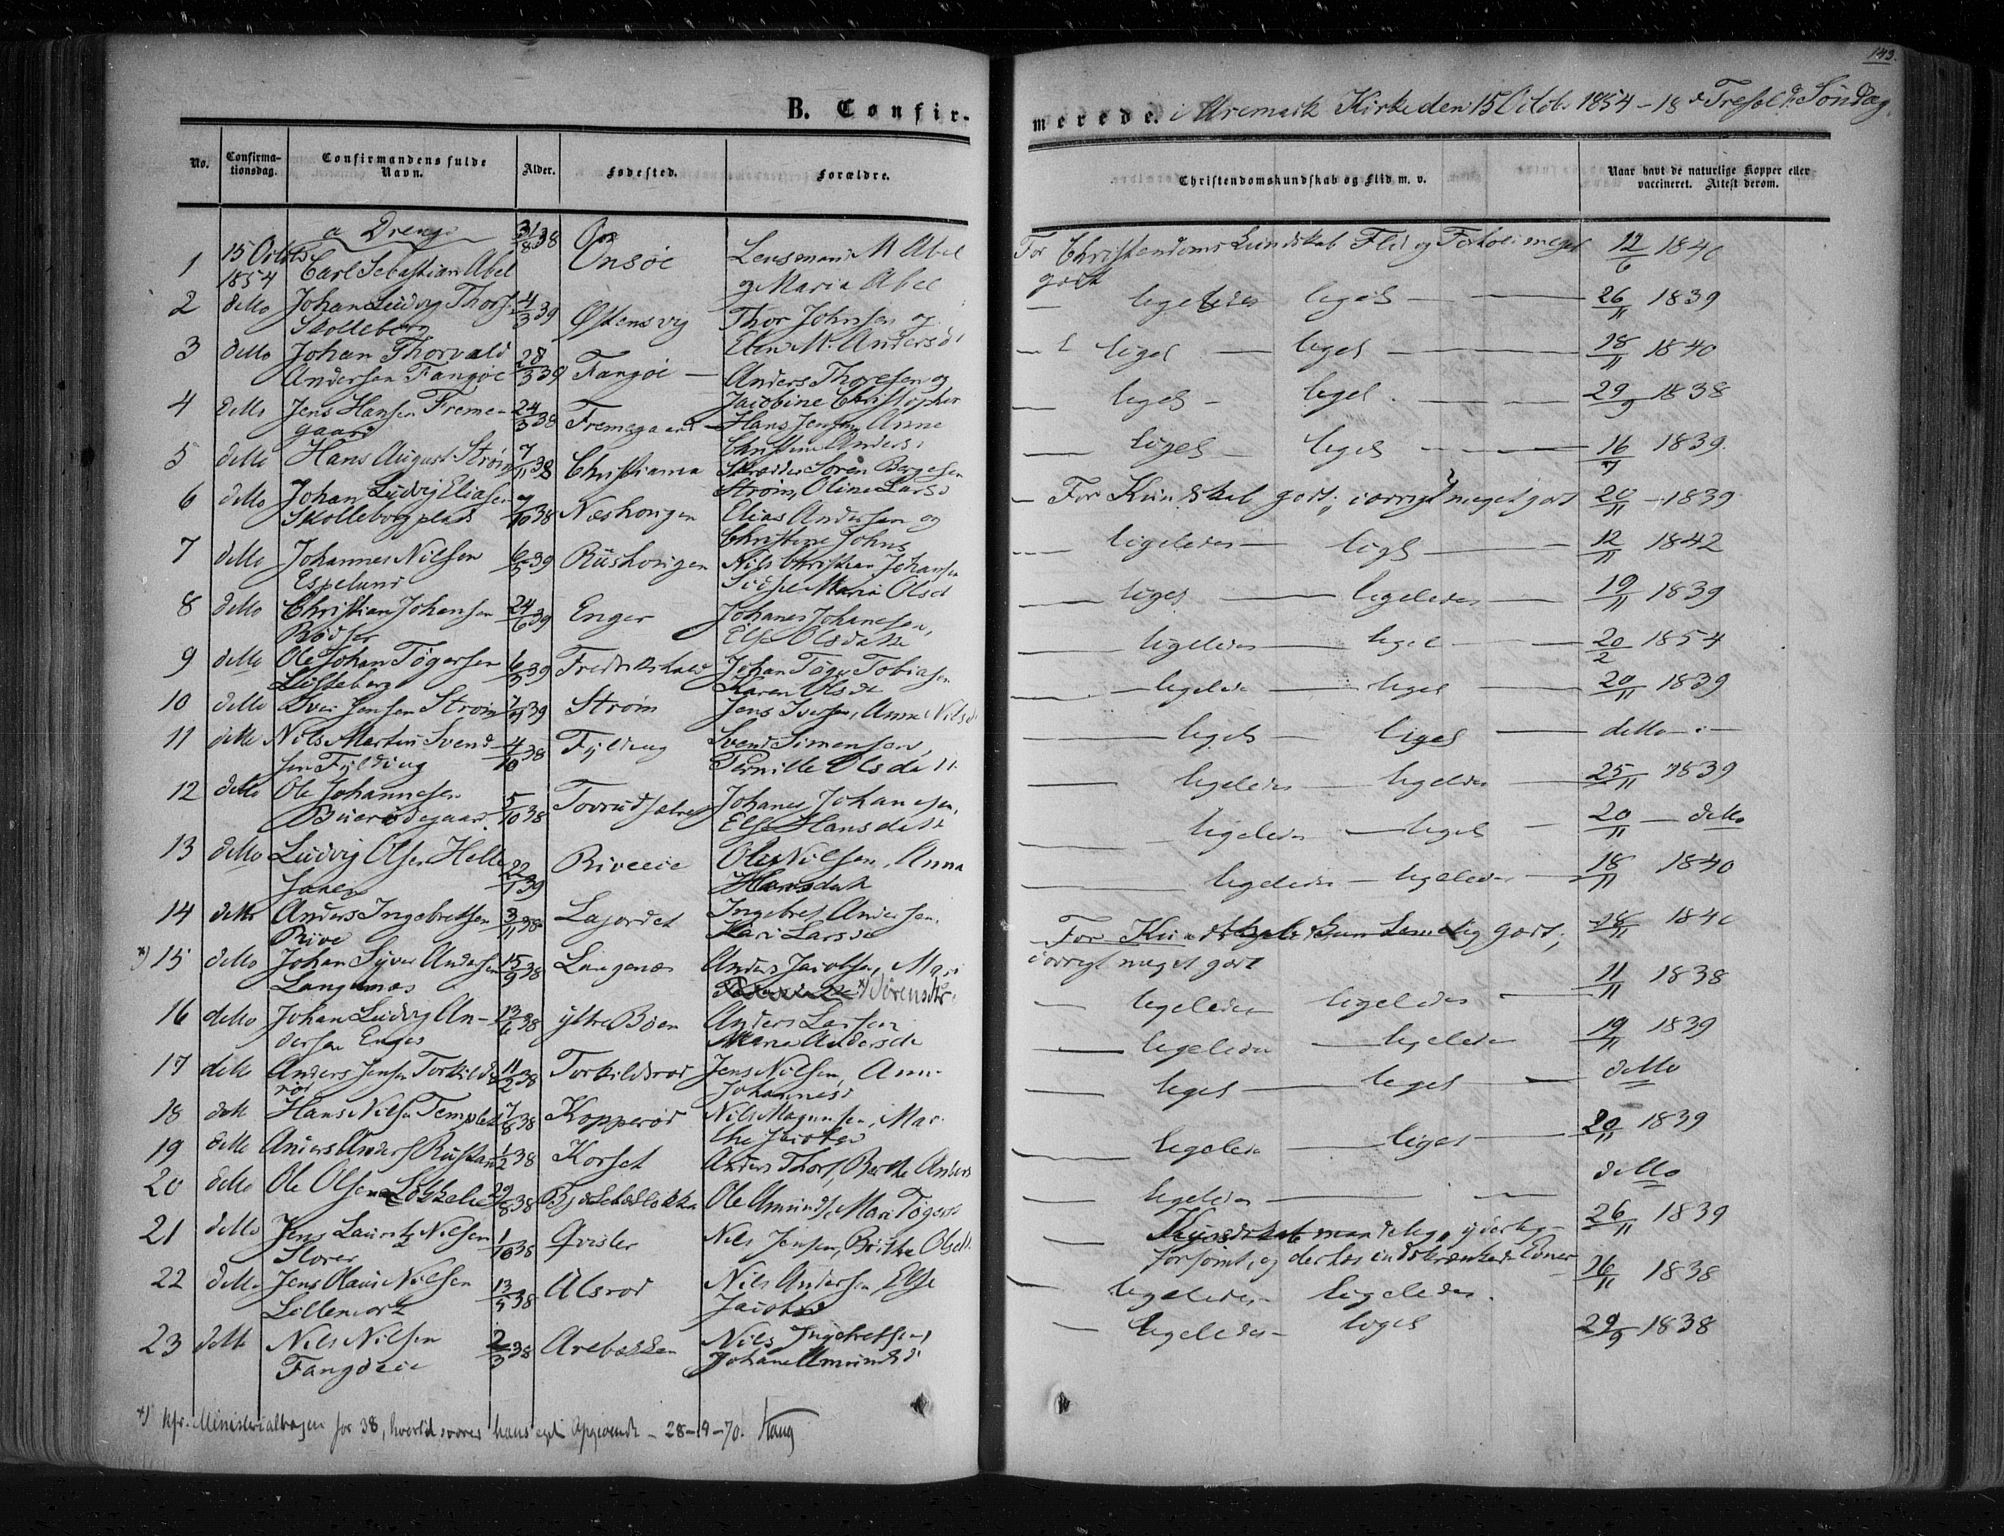 143.
B. Confir-
merede. i Aremark Kirke den 15 Octob. 1854 – 18 d Søndag
No.
Confirma-
tionsdag.
Confirmandens fulde
Navn.
Alder.
Fødested.
Forældre.
Christendomskundskab og Flid m. v.
Naar havt de naturlige Kopper eller
vaccineret. Attest derom.
a Drenge
1 15 Octob 1854 Carl Sebastian Abel 31/8 38 Onsøe Lensmand M Abel og Maria Abel For Christendoms Kundskab Flid og Forhold meget godt 12/6 1840
2 detto Johan Ludvig Thors. Skolleborg 4/3 39 Østensvig Thor Johnsen og Elen M. Andersd. – ligeledes – liges – 26/11 1839
3 detto Johan Thorvald Andersen Fangøe 28/3 39 Fangøe – Anders Thoresen og Jacobine Christopher – liges – liges – 18/11 1840
4 detto Jens Hansen Fremegaard 24/3 38 Fremegaard Hans Jensen, Anne Christine Anders. – liges – liges. – 29/9 1838
5 detto Hans August Strøm 7/11 38 Christiania Søren Børgesen Strøm, Oline Larsd – liges – liges – 16/7 1839.
6 detto Johan Ludvig Eliasen Skolleborgplads 7/10 38 Næshougen Elias Andersen og Christine Johns – For Kundskab godt; iøvrigt meget godt 20/11 – 1839
7 detto Johannes Nilsen Espelund 6/5 39 Nils Christian Johansen Maria Olsd – ligeledes – ligel – 12/11 1842
8 detto Christian Johansen Rødser 24/6 39 Enger Johanes Johanesen, Else Olsdatt – liges – ligeledes – 19/11 1839
9 detto Ole Johan Tøgersen 6/5 39 Fredrikshald Johan Tøger Tobiasen Karen Olsd – ligeledes – ligel – 20/2 1854
10 detto Iver Jensen Strøm 39 Strøm Jens Iversen, Anne Nilsd – ligeledes – liges – 20/11 1839
11 detto Nils Martin Svendsen Fylding 4/10 38 Fylding Svend Simensen, Pernille Olsdatt. – liges – liges – detto –
12 detto Ole Johannesen Buerødegaard. 5/10 38 Johanes Johanesen, Else Hansdatt – ligeledes – ligeledes – 25/11 1839
13 detto Ludvig Olsen 22/1 39 Riveeie Ole Nilsen, Anna Hansdatt – ligeledes – liges – 20/11 – detto
14 detto Anders Ingebretsen Rive 3/11 38 Ingebret Andersen. Mari Larsd – ligeledes – ligeledes – 18/11 1840
*) 15 detto Johan Syver Andersen Langenæs 15/9 38 Langenæs Anders Jacobsen, Mari *) Sørensdtr. For Kundskab godt; iøvrigt meget godt 28/11 1840
16 detto Johan Ludvig Andersen Enger 13/6 38 ytre Bøen Anders Larsen Maria Andersdt – ligeledes ligeledes – 11/11 1838
17 detto Anders Jensen Torkildsrød 11/2 38 Torkildsrød Jens Nilsen, Anne Johannesd – ligeledes – ligeledes 19/11 1839
18 dett Hans Nilsen Templet 17/8 38 Kopperød Nils Magnusen, Marthe Jacobsd – liges – liges – detto
19 detto Anders Anders. 1/2 38 Korset Anders Thors, Berthe Anders – ligeledes – liges – 20/11 1839
20 detto Ole Olsen 29/8 38 Ole Amunds, Mari Tøgers – ligeledes – – detto
21 detto Jens Lauritz Nilsen Slorer 1/10 38 Qvisler Nils Jensen, Britha Olsdt – Kundskab maadelig, yderlig forsømt, og derhos indskrænkede Evner 26/11 1839
22 detto Jens Olaus Nilsen Lillemork 13/5 38 Alsrød Nils Andersen, Else Jacobsd – ligeledes – ligeledes. 26/11 1838
23 detto Nils Nilsen Fangøeie 2/3 38 Arebækken Nils Ingebretsen, Johane Amundsd. – ligeledes – liges 29/9 1838
*) kfr. Ministerialbogen for 38, hvortil svarer hans eget Opgivende – 28-19-70. Haug